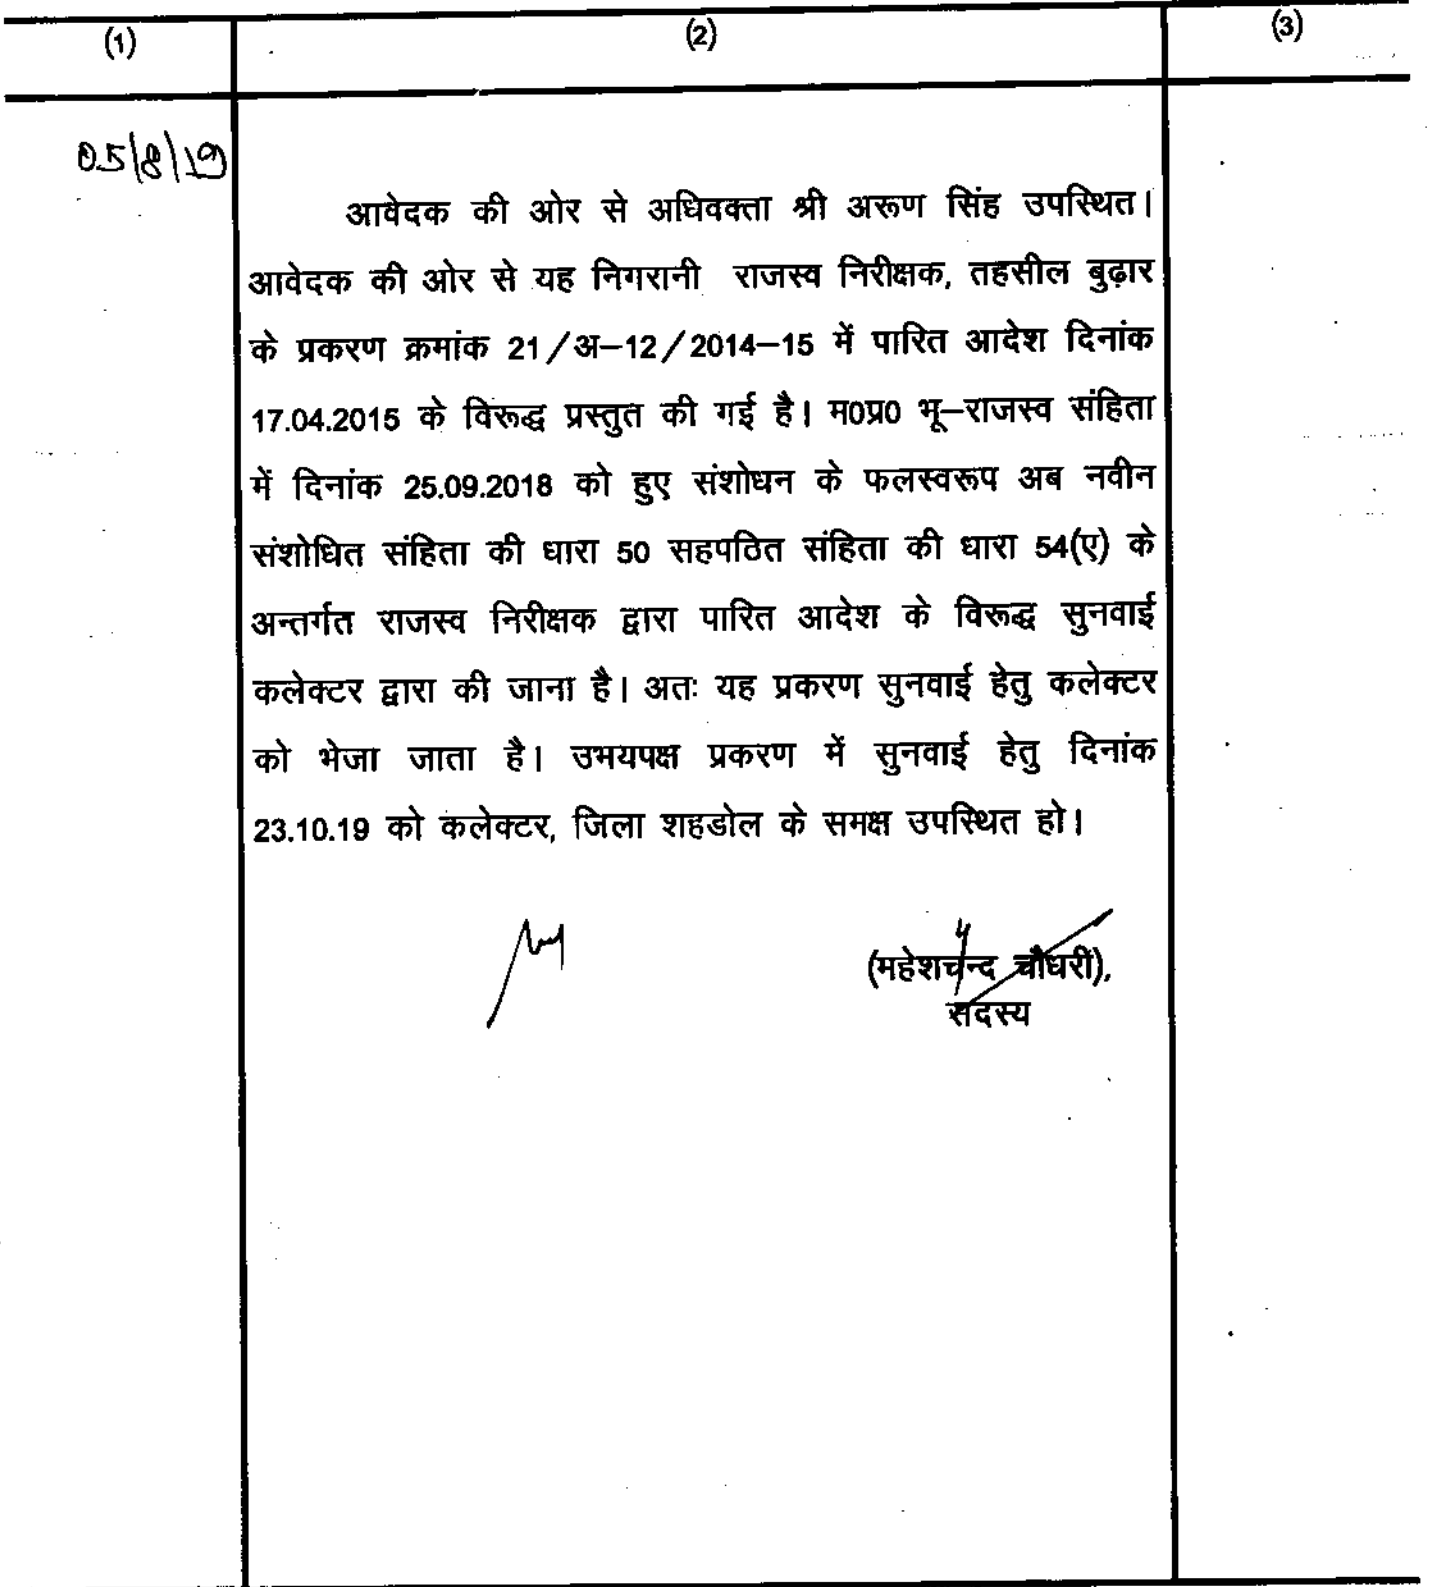 (1) (2) (3)
05/8/19
आवेदक की ओर से अधिवक्ता श्री अरूण सिंह उपस्थित।
आवेदक की ओर से यह निगरानी राजस्व निरीक्षक, तहसील बुढ़ार
के प्रकरण क्रमांक 21/अ–12/2014–15 में पारित आदेश दिनांक
17.04.2015 के विरूद्ध प्रस्तुत की गई है। म0प्र0 भू–राजस्व संहिता
में दिनांक 25.09.2018 को हुए संशोधन के फलस्वरूप अब नवीन
संशोधित संहिता की धारा 50 सहपठित संहिता की धारा 54(ए) के
अन्तर्गत राजस्व निरीक्षक द्वारा पारित आदेश के विरूद्ध सुनवाई
कलेक्टर द्वारा की जाना है। अतः यह प्रकरण सुनवाई हेतु कलेक्टर
को भेजा जाता है। उभयपक्ष प्रकरण में सुनवाई हेतु दिनांक
23.10.19 को कलेक्टर, जिला शहडोल के समक्ष उपस्थित हो।
(महेशचन्द चौधरी),
सदस्य